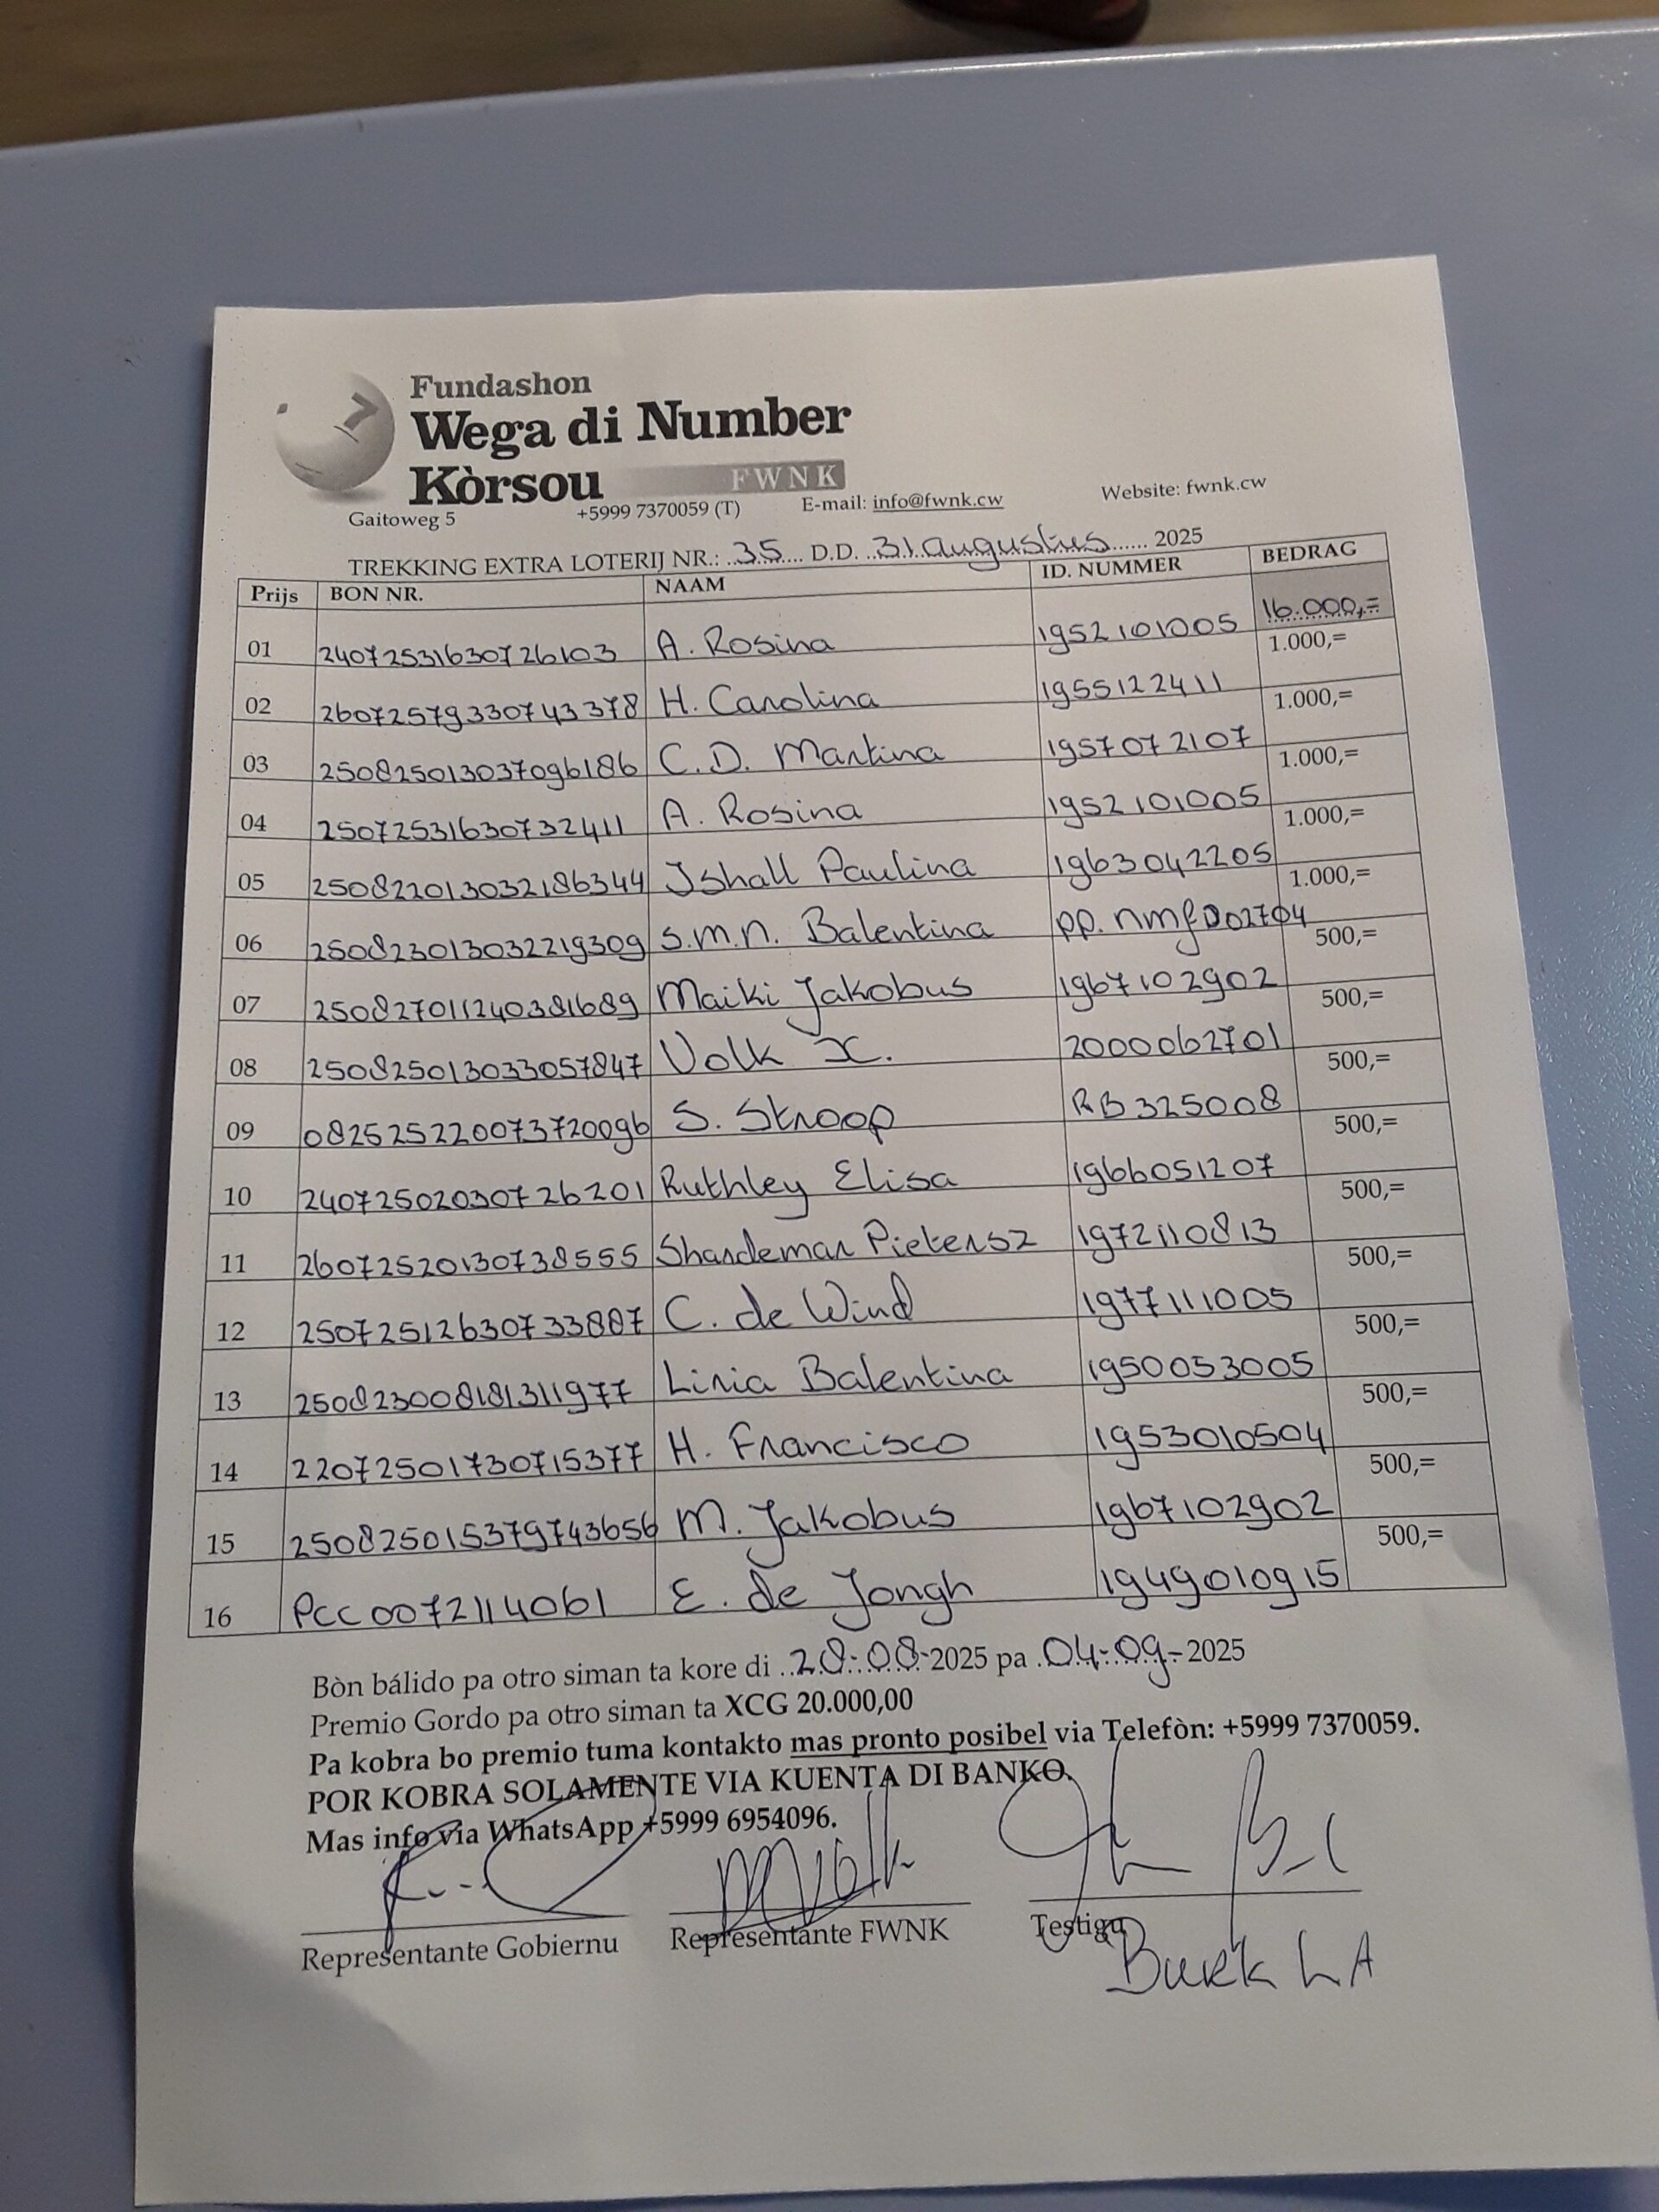 Fundashon
Wega di Number
Kòrsou FWNK
Gaitoweg 5 +5999 7370059 (T) E-mail: info@fwnk.cw Website: fwnk.cw
TREKKING EXTRA LOTERIJ NR.: ..35.... D.D. ..31.augustus...... 2025
Prijs BON NR. NAAM ID. NUMMER BEDRAG
01 24072531630726103 A. Rosina 1952101005 16.000,=
02 26072579330743378 H. Carolina 1955122411 1.000,=
03 250825013037096186 C.D. Martina 1957072107 1.000,=
04 25072531630732411 A. Rosina 1952101005 1.000,=
05 250822013032186344 Jshall Paulina 1963042205 1.000,=
06 250823013032219309 S.M.N. Balentina pp. nmfD02704 1.000,=
07 250827011240381689 Maiki Jakobus 1967102902 500,=
08 250825013033057847 Volk X. 2000062701 500,=
09 082525220073720096 S. Stroop RB325008 500,=
10 24072502030726201 Ruthley Elisa 1966051207 500,=
11 26072520130738555 Shardeman Pietersz 1972110813 500,=
12 25072512630733887 C. de Wind 1977111005 500,=
13 250823008181311977 Liria Balentina 1950053005 500,=
14 22072501730715377 H. Francisco 1953010504 500,=
15 250825015379743656 M. Jakobus 1967102902 500,=
16 PCC0072114061 E. de Jongh 1949010915 500,=
Bòn bálido pa otro siman ta kore di ..28-.08-2025 pa .04-.09.- 2025
Premio Gordo pa otro siman ta XCG 20.000,00
Pa kobra bo premio tuma kontakto mas pronto posibel via Telefòn: +5999 7370059.
POR KOBRA SOLAMENTE VIA KUENTA DI BANKO.
Mas info via WhatsApp +5999 6954096.
Representante Gobiernu Representante FWNK Testigu
Burk LA